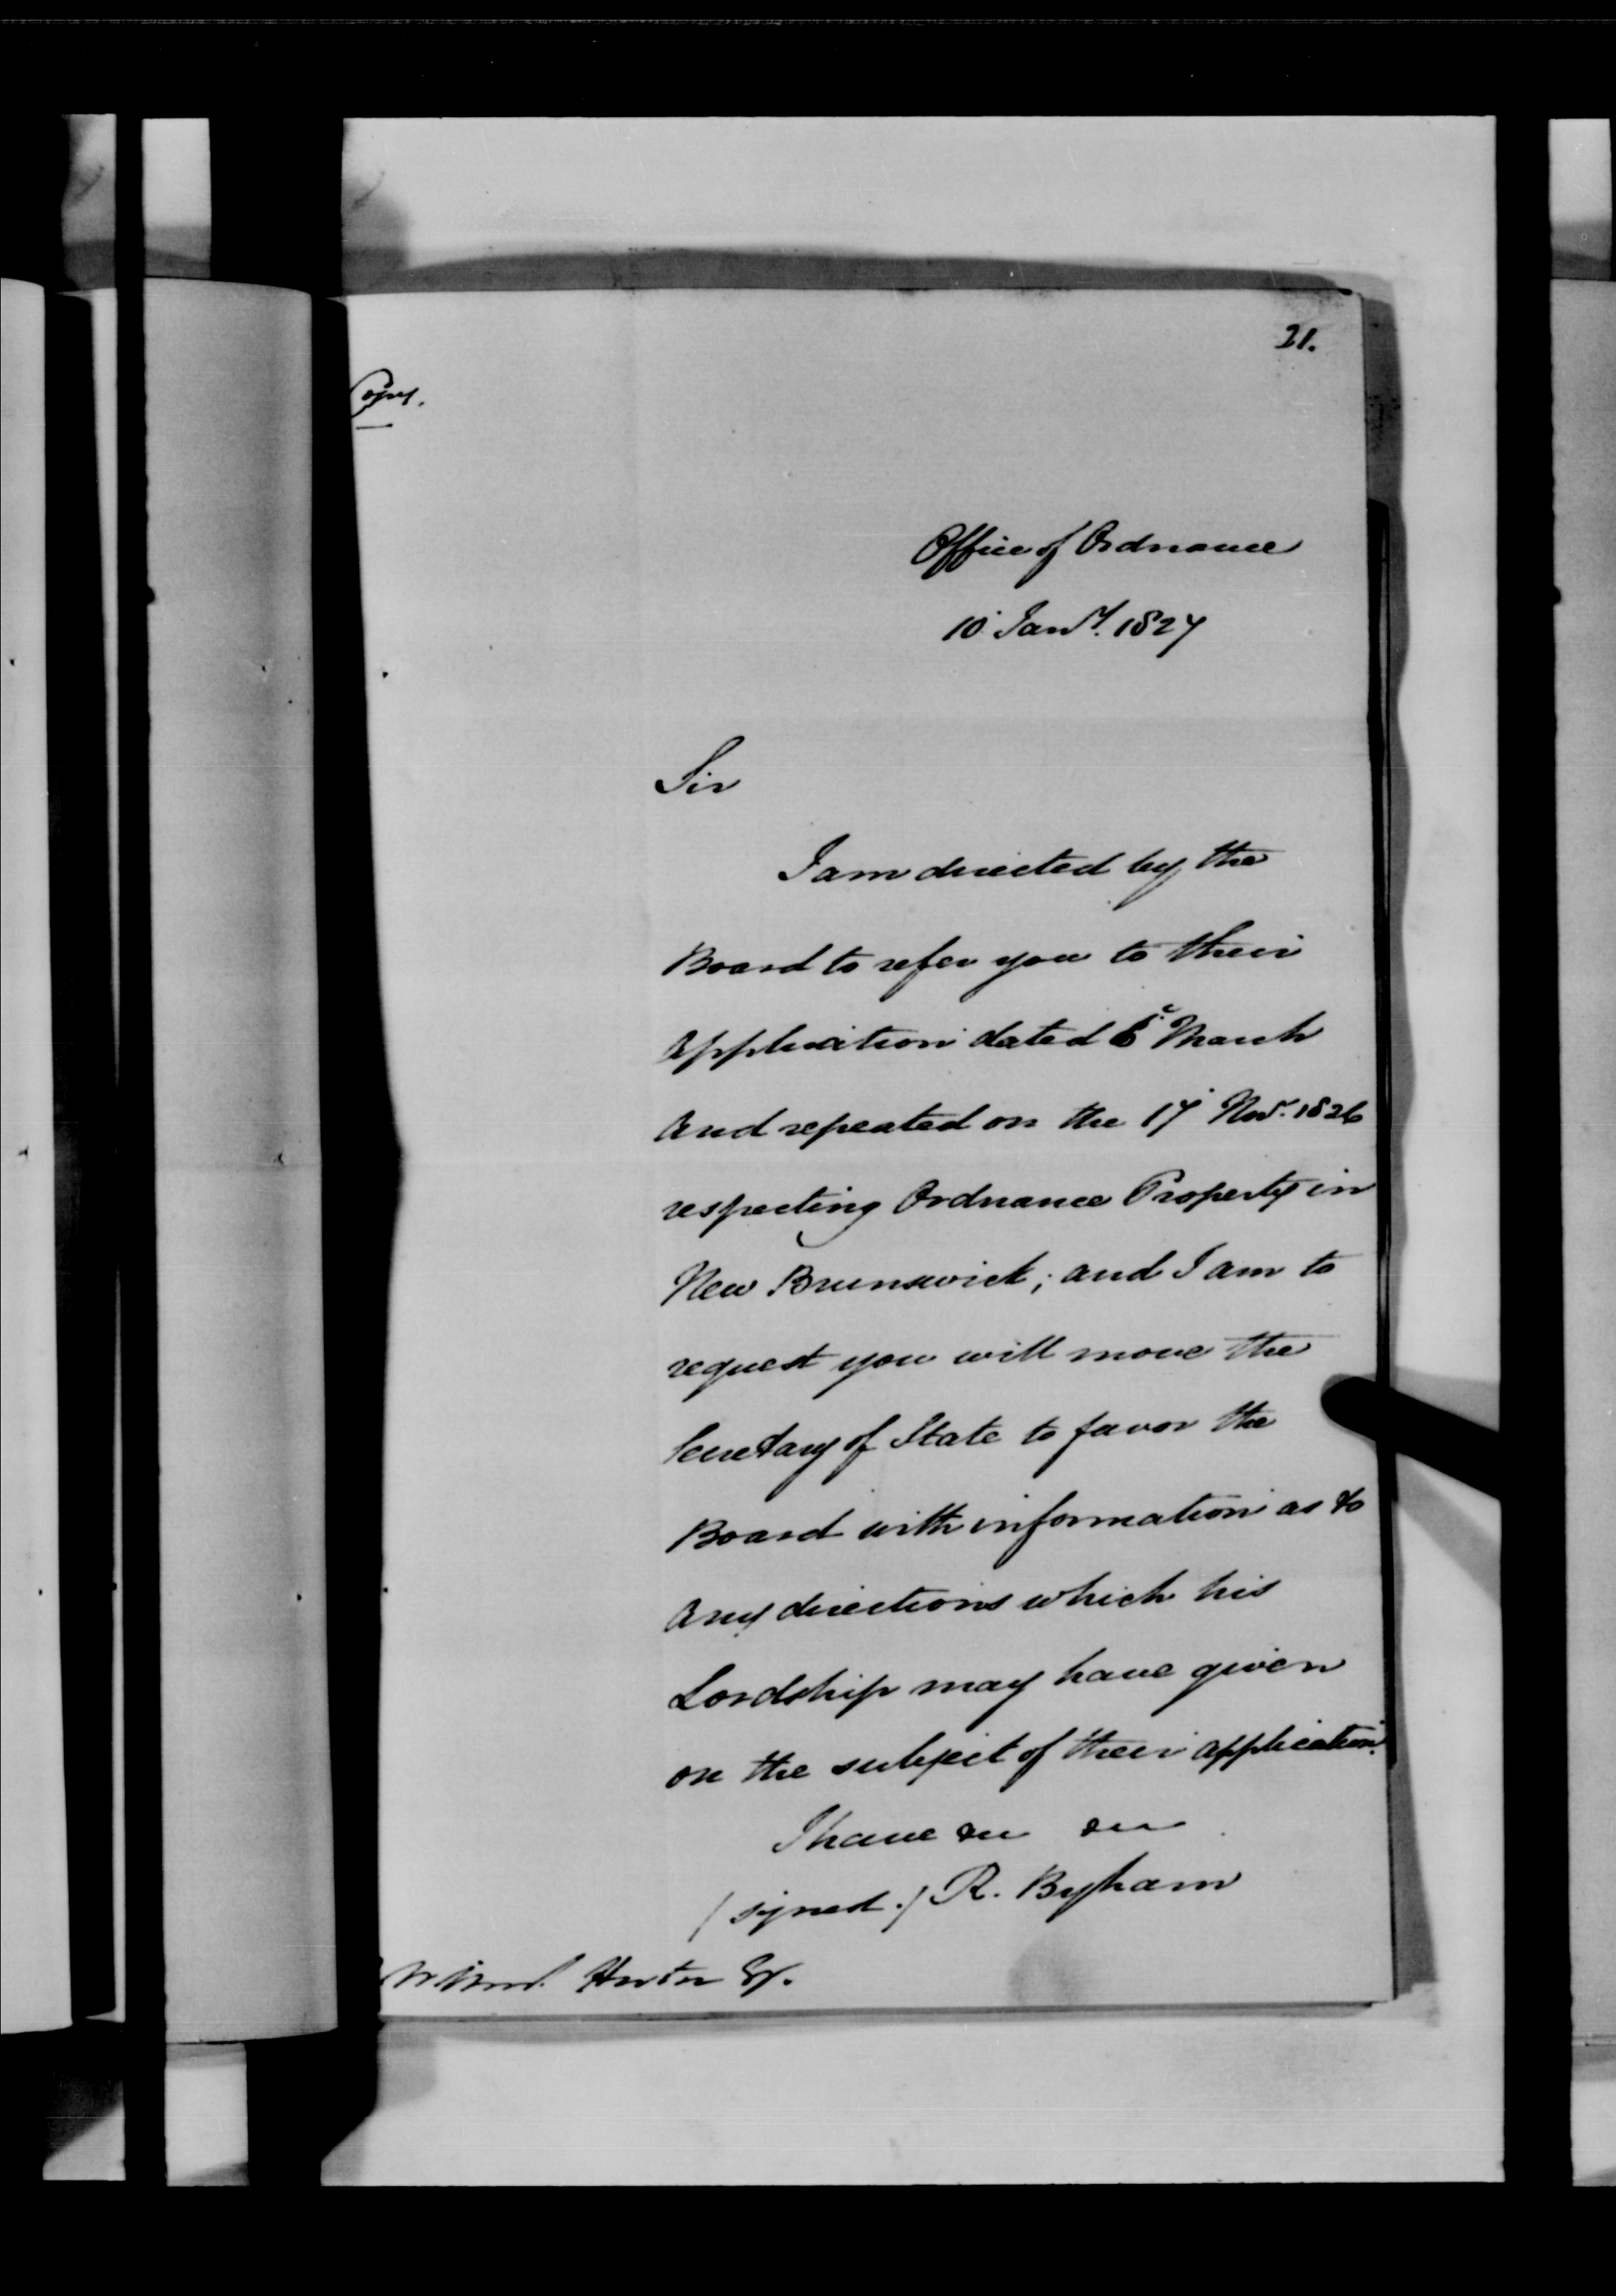 21.
Copy.
Office of Ordnance
10 Jany. 1827
Sir
I am directed by the
Board to refer you to their
application dated 6 March
and repeated on the 17 Nov. 1826
respecting Ordnance Property in
New Brunswick; and I am to
request you will move the
Secretary of State to favor the
Board with information as to
any directions which his
Lordship may have given
on the subject of their application.
I have &c &c
(signed.) R. Byham
Horton Esq.